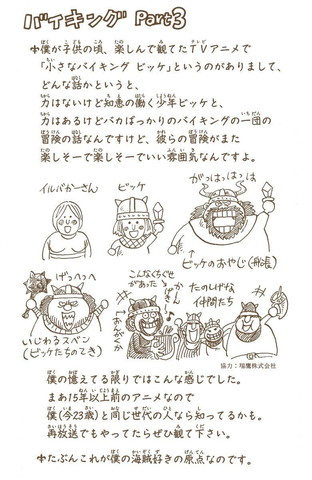 バイキング Part3
✢僕が子供の頃、楽しんで観てたTVアニメで
「小さなバイキング ビッケ」というのがありまして、
どんな話かというと、
力はないけど知恵の働く少年ビッケと、
力はあるけどバカばっかりのバイキングの一団の
冒険の話なんですけど、彼らの冒険がまた
楽しそーで楽しそーでいい雰囲気なんですよ。
イルバかーさん
ビッケ
がっはっはっは
↑
ビッケのおやじ(船長)
げっへっへ
いじわるスベン
(ビッケたちのてき)
こんなくちぐせ
があったっけか
たのしげな
仲間たち
協力:瑞鷹株式会社
僕の憶えてる限りではこんな感じでした。
まあ15年以上前のアニメなので
僕(今23歳)と同じ世代の人なら知ってるかも。
再放送でもやってたらぜひ観て下さい。
✢たぶんこれが僕の海賊好きの原点なのです。